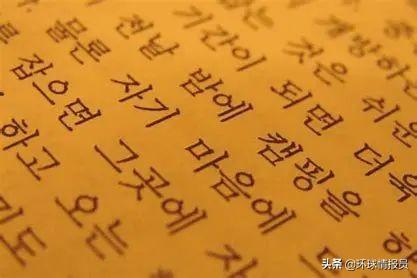 개방하는
는 것은 쉬운
기간이 되면 더욱
전날 밤에 캠핑을 하
물론 자기 마음에
잡으면 그곳에 자
하고 오는
도
头条 @环球情报员